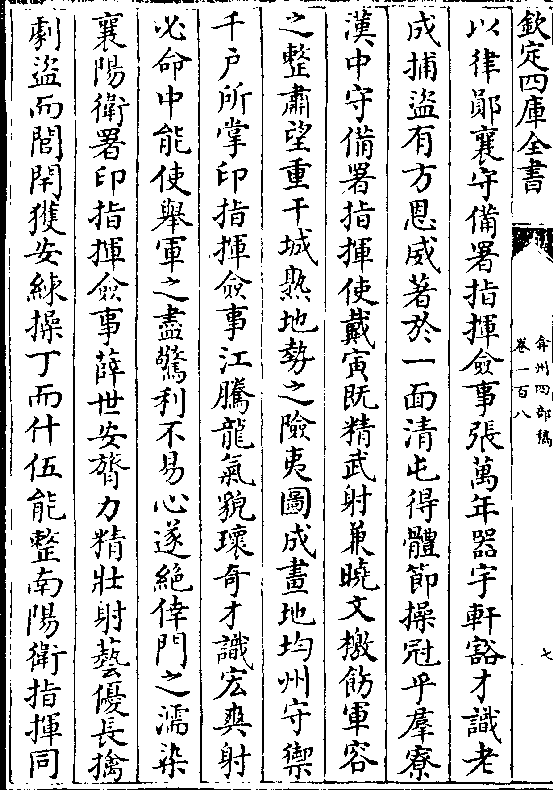 欽定四庫全書
弇州四部稿
卷一百八
七
以律鄖襄守備署指揮僉事張萬年器宇軒豁才識老
成捕盜有方恩威著於一面清屯得體節操冠乎羣寮
漢中守備署指揮使戴寅既精武射兼曉文檄飭軍容
之整肅望重干城熟地勢之險夷圖成畫地均州守禦
千戶所掌印指揮僉事江騰龍氣貌瓌奇才識宏爽射
必命中能使舉軍之盡驚利不易心遂絶倖門之濡染
襄陽衛署印指揮僉事薛世安膂力精壯射藝優長擒
劇盜而閭閈獲安練操丁而什伍能整南陽衛指揮同